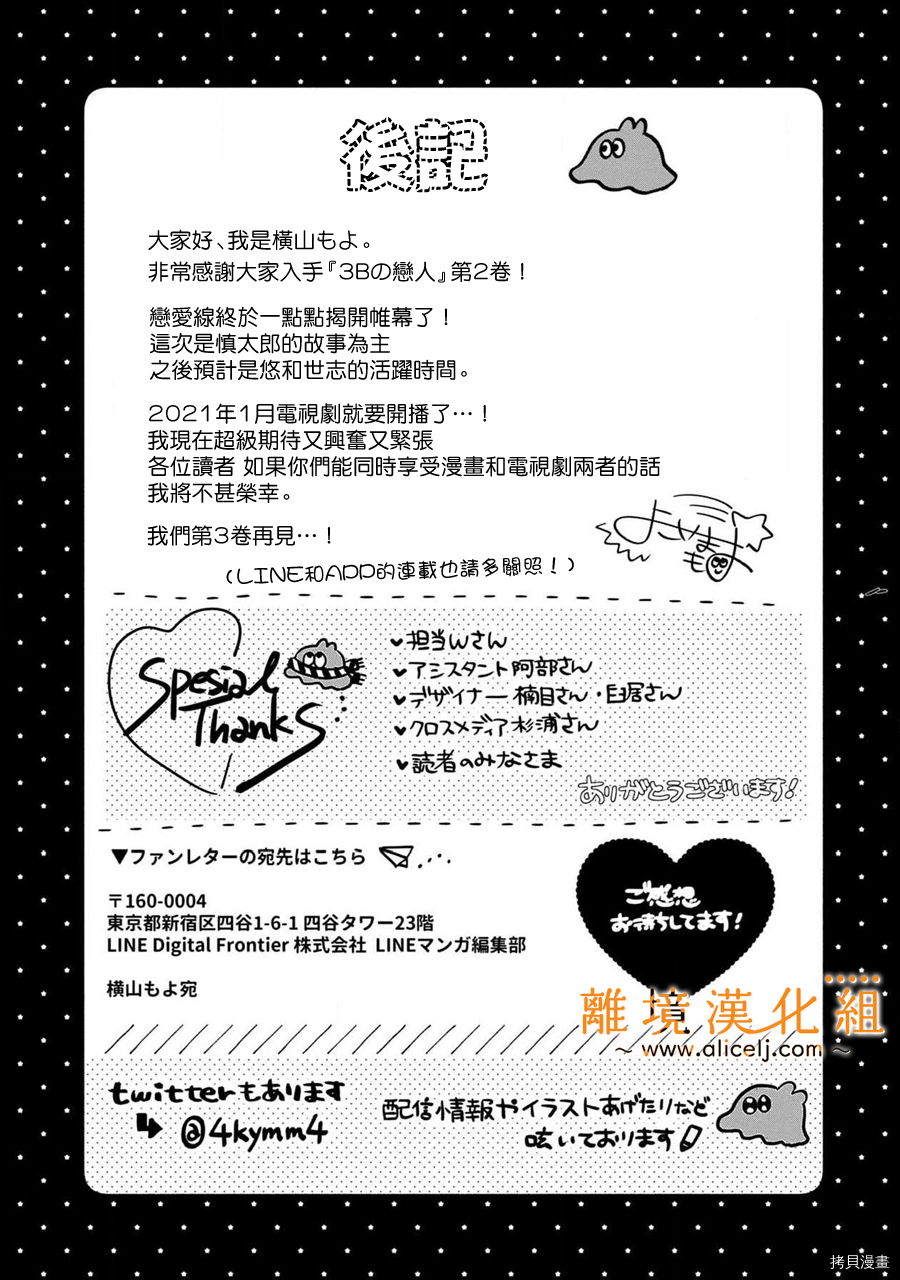 後記
大家好、我是橫山もよ。
非常感謝大家入手『3Bの戀人』第2卷！
戀愛線終於一點點揭開帷幕了！
這次是慎太郎的故事為主
之後預計是悠和世志的活躍時間。
2021年1月電視劇就要開播了…！
我現在超級期待又興奮又緊張
各位讀者 如果你們能同時享受漫畫和電視劇兩者的話
我將不甚榮幸。
我們第3卷再見…！
(LINE和APP的連載也請多關照！)
Spesial
Thanks
担当Wさん
アシスタント 阿部さん
デザイナー 楠目さん・臼居さん
クロスメディア 杉浦さん
読者のみなさま
ありがとうございます!
▼ファンレターの宛先はこちら
〒160-0004
東京都新宿区四谷1-6-1 四谷タワー23階
LINE Digital Frontier 株式会社 LINEマンガ編集部
横山もよ宛
ご感想
お待ちしてます!
離境漢化組
~ www.alicelj.com ~
twitterもあります
@4kymm4
配信情報やイラストあげたりなど
呟いております
拷貝漫畫